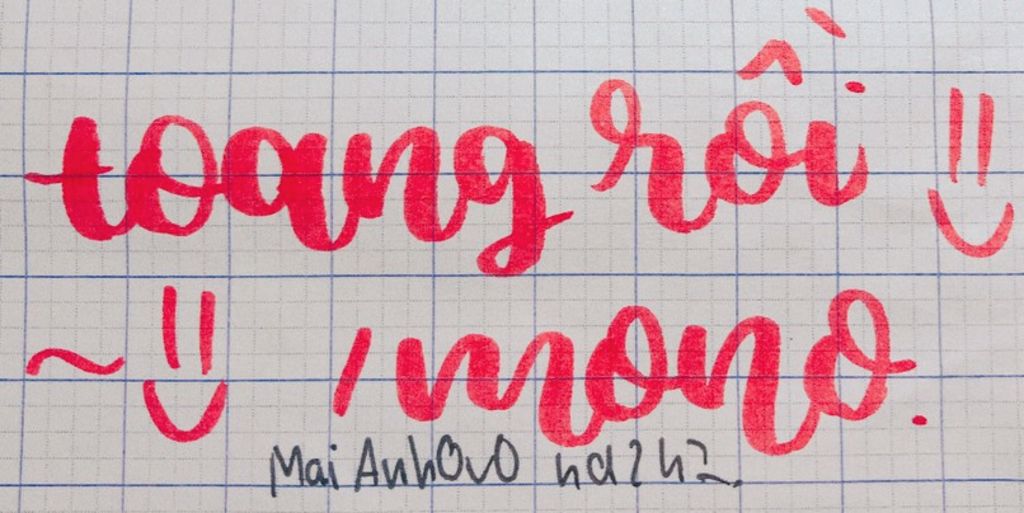 toang rồi =)
~ =) /mono.
Mai Anh OvO